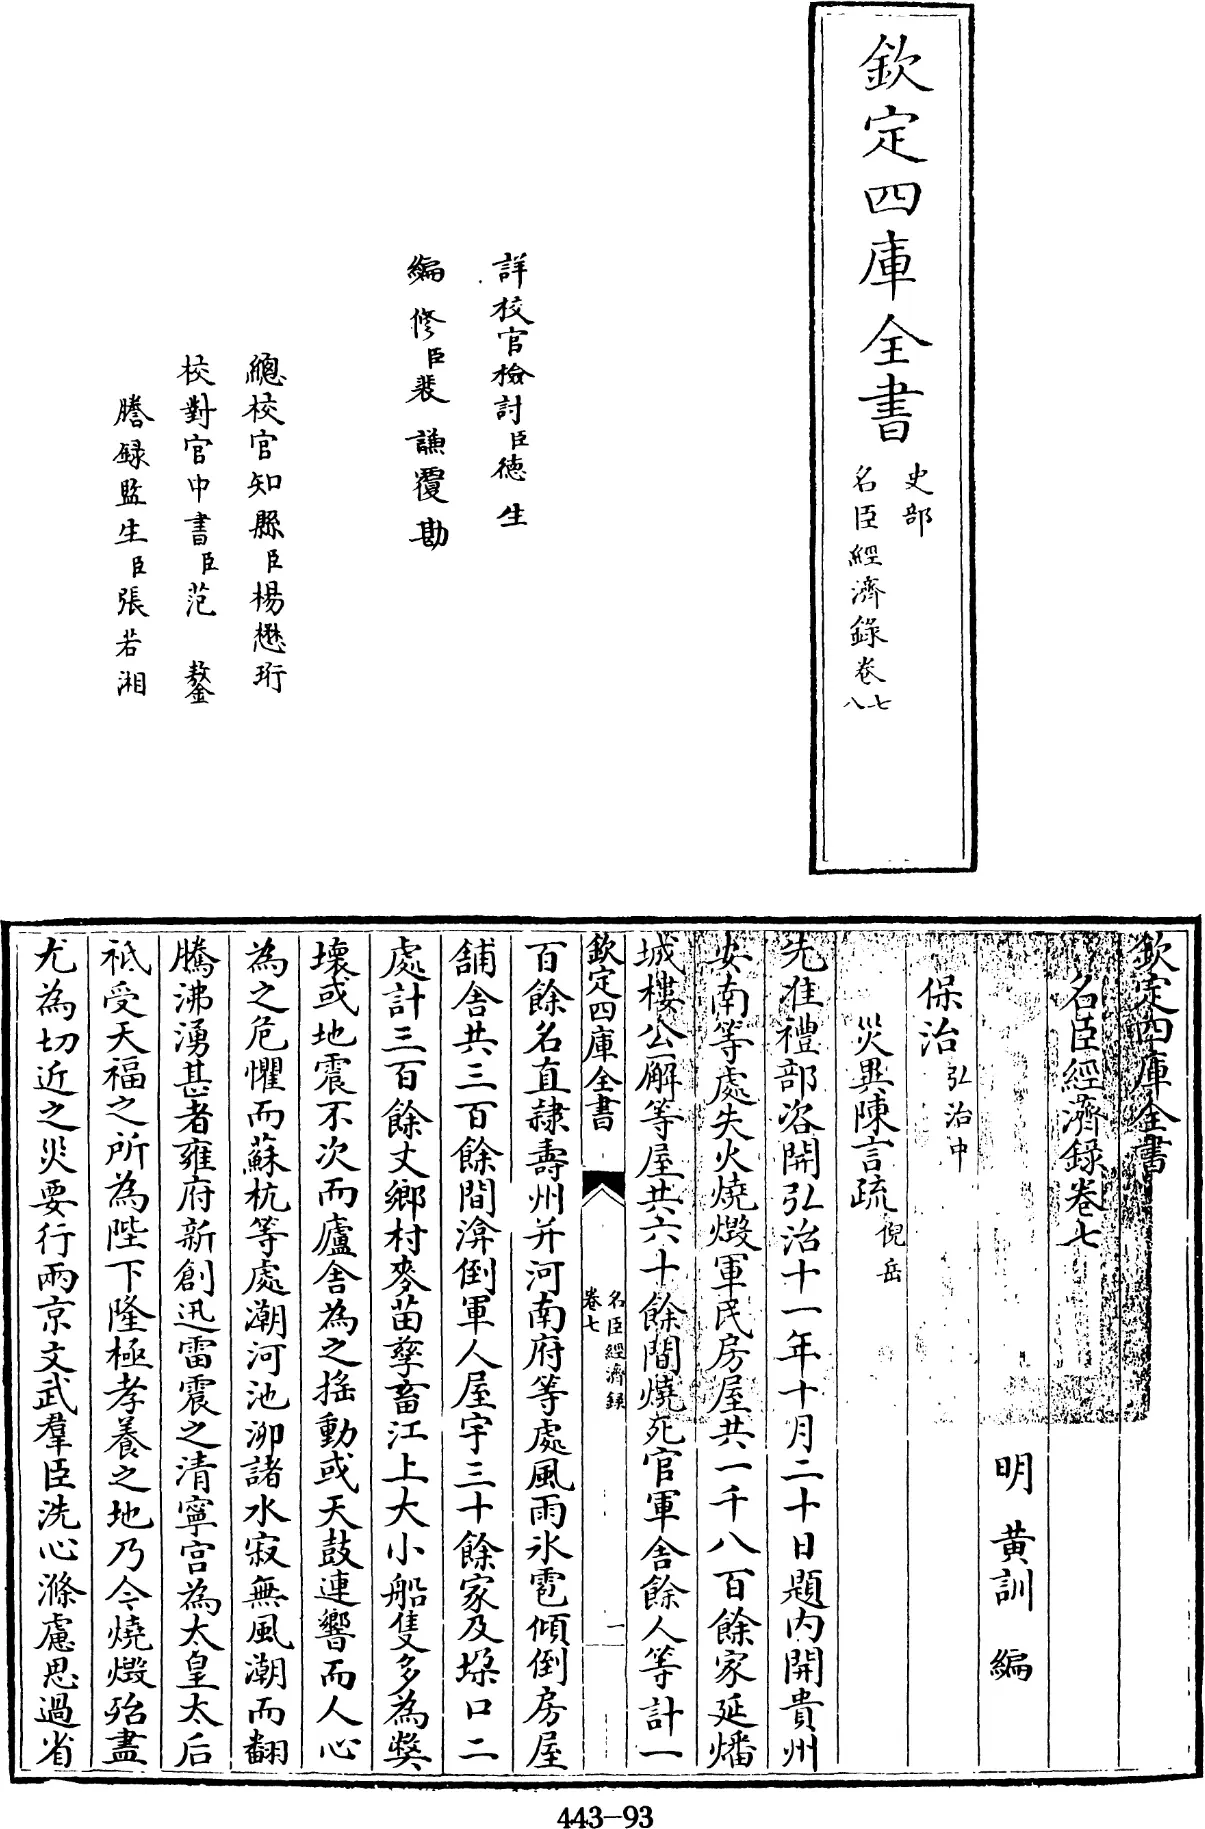 欽定四庫全書
史部
名臣經濟錄卷七
八
詳校官檢討臣德生
編修臣裴謙覆勘
總校官知縣臣楊懋珩
校對官中書臣范鏊
謄録監生臣張若湘
欽定四庫全書
名臣經濟錄卷七
明 黄訓 編
保治弘治中
災異陳言疏倪岳
先准禮部咨開弘治十一年十月二十日題内開貴州
安南等處失火燒燬軍民房屋共一千八百餘家延燔
城樓公廨等屋共六十餘間燒死官軍舍餘人等計一
欽定四庫全書
名臣經濟録
卷七
一
百餘名直隷壽州并河南府等處風雨氷雹傾倒房屋
舖舍共三百餘間渰倒軍人屋宇三十餘家及垜口二
處計三百餘丈鄉村麥苗孳畜江上大小船隻多為獘
壞或地震不次而廬舍為之揺動或天鼓連響而人心
為之危懼而蘇杭等處潮河池泖諸水寂無風潮而翻
騰沸湧甚者雍府新創迅雷震之清寧宫為太皇太后
祗受天福之所為陛下隆極孝養之地乃今燒燬殆盡
尤為切近之災要行兩京文武羣臣洗心滌慮思過省
443-93